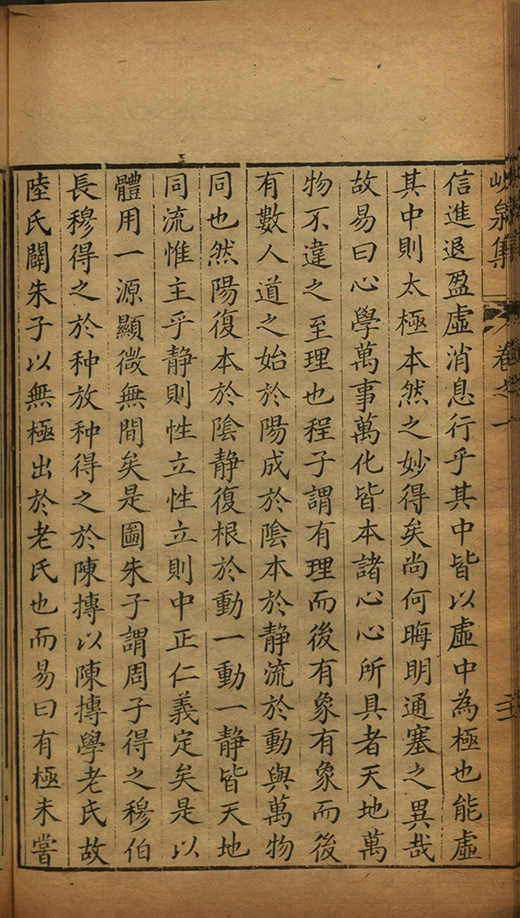 峴泉集 卷之一 三
信進退盈虛消息行乎其中皆以虛中為極也能虛
其中則太極本然之妙得矣尚何晦明通塞之異哉
故易曰心學萬事萬化皆本諸心心所具者天地萬
物不違之至理也程子謂有理而後有象有象而後
有數人道之始於陽成於陰本於静流於動與萬物
同也然陽復本於陰静復根於動一動一静皆天地
同流惟主乎静則性立性立則中正仁義定矣是以
體用一源顯微無間矣是圖朱子謂周子得之穆伯
長穆得之於种放种得之於陳摶以陳摶學老氏故
陸氏闢朱子以無極出於老氏也而易曰有極未嘗